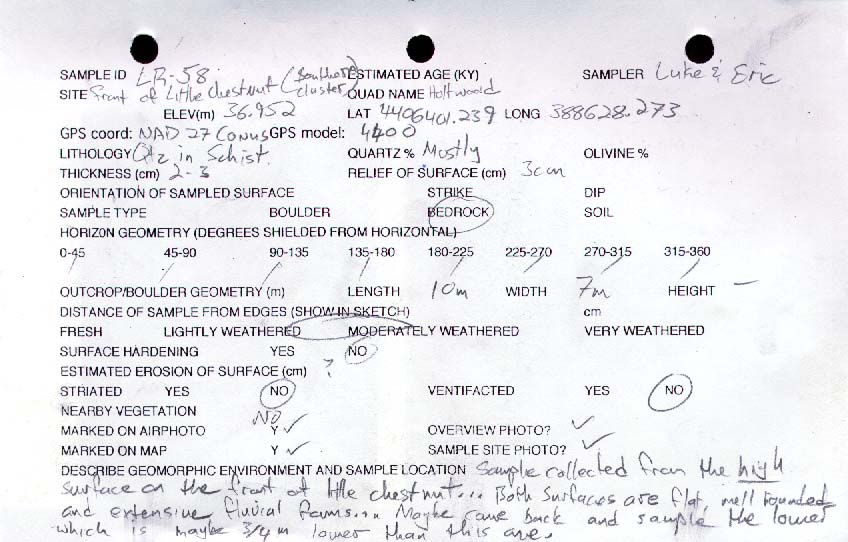 SAMPLE ID LR-58 (Southern ESTIMATED AGE (KY) SAMPLER Luke & Eric
SITE front of Little chestnut cluster) QUAD NAME Holtwood
ELEV(m) 36.952 LAT 4406401.239 LONG 388628.273
GPS coord: NAD 27 Conus GPS model: 4400
LITHOLOGY Qtz in Schist. QUARTZ % Mostly OLIVINE %
THICKNESS (cm) 2-3 RELIEF OF SURFACE (cm) 3cm
ORIENTATION OF SAMPLED SURFACE STRIKE DIP
SAMPLE TYPE BOULDER BEDROCK SOIL
HORIZON GEOMETRY (DEGREES SHIELDED FROM HORIZONTAL)
0-45 45-90 90-135 135-180 180-225 225-270 270-315 315-360
OUTCROP/BOULDER GEOMETRY (m) LENGTH 10m WIDTH 7m HEIGHT —
DISTANCE OF SAMPLE FROM EDGES (SHOW IN SKETCH) cm
FRESH LIGHTLY WEATHERED MODERATELY WEATHERED VERY WEATHERED
SURFACE HARDENING YES NO
ESTIMATED EROSION OF SURFACE (cm) ?
STRIATED YES NO VENTIFACTED YES NO
NEARBY VEGETATION NO
MARKED ON AIRPHOTO Y ✓ OVERVIEW PHOTO? ✓
MARKED ON MAP Y ✓ SAMPLE SITE PHOTO? ✓
DESCRIBE GEOMORPHIC ENVIRONMENT AND SAMPLE LOCATION Sample collected from the high
surface on the front of little chestnut... Both surfaces are flat, well rounded
and extensive fluvial forms... Maybe come back and sample the lower
which is maybe 3/4 m lower than this one.